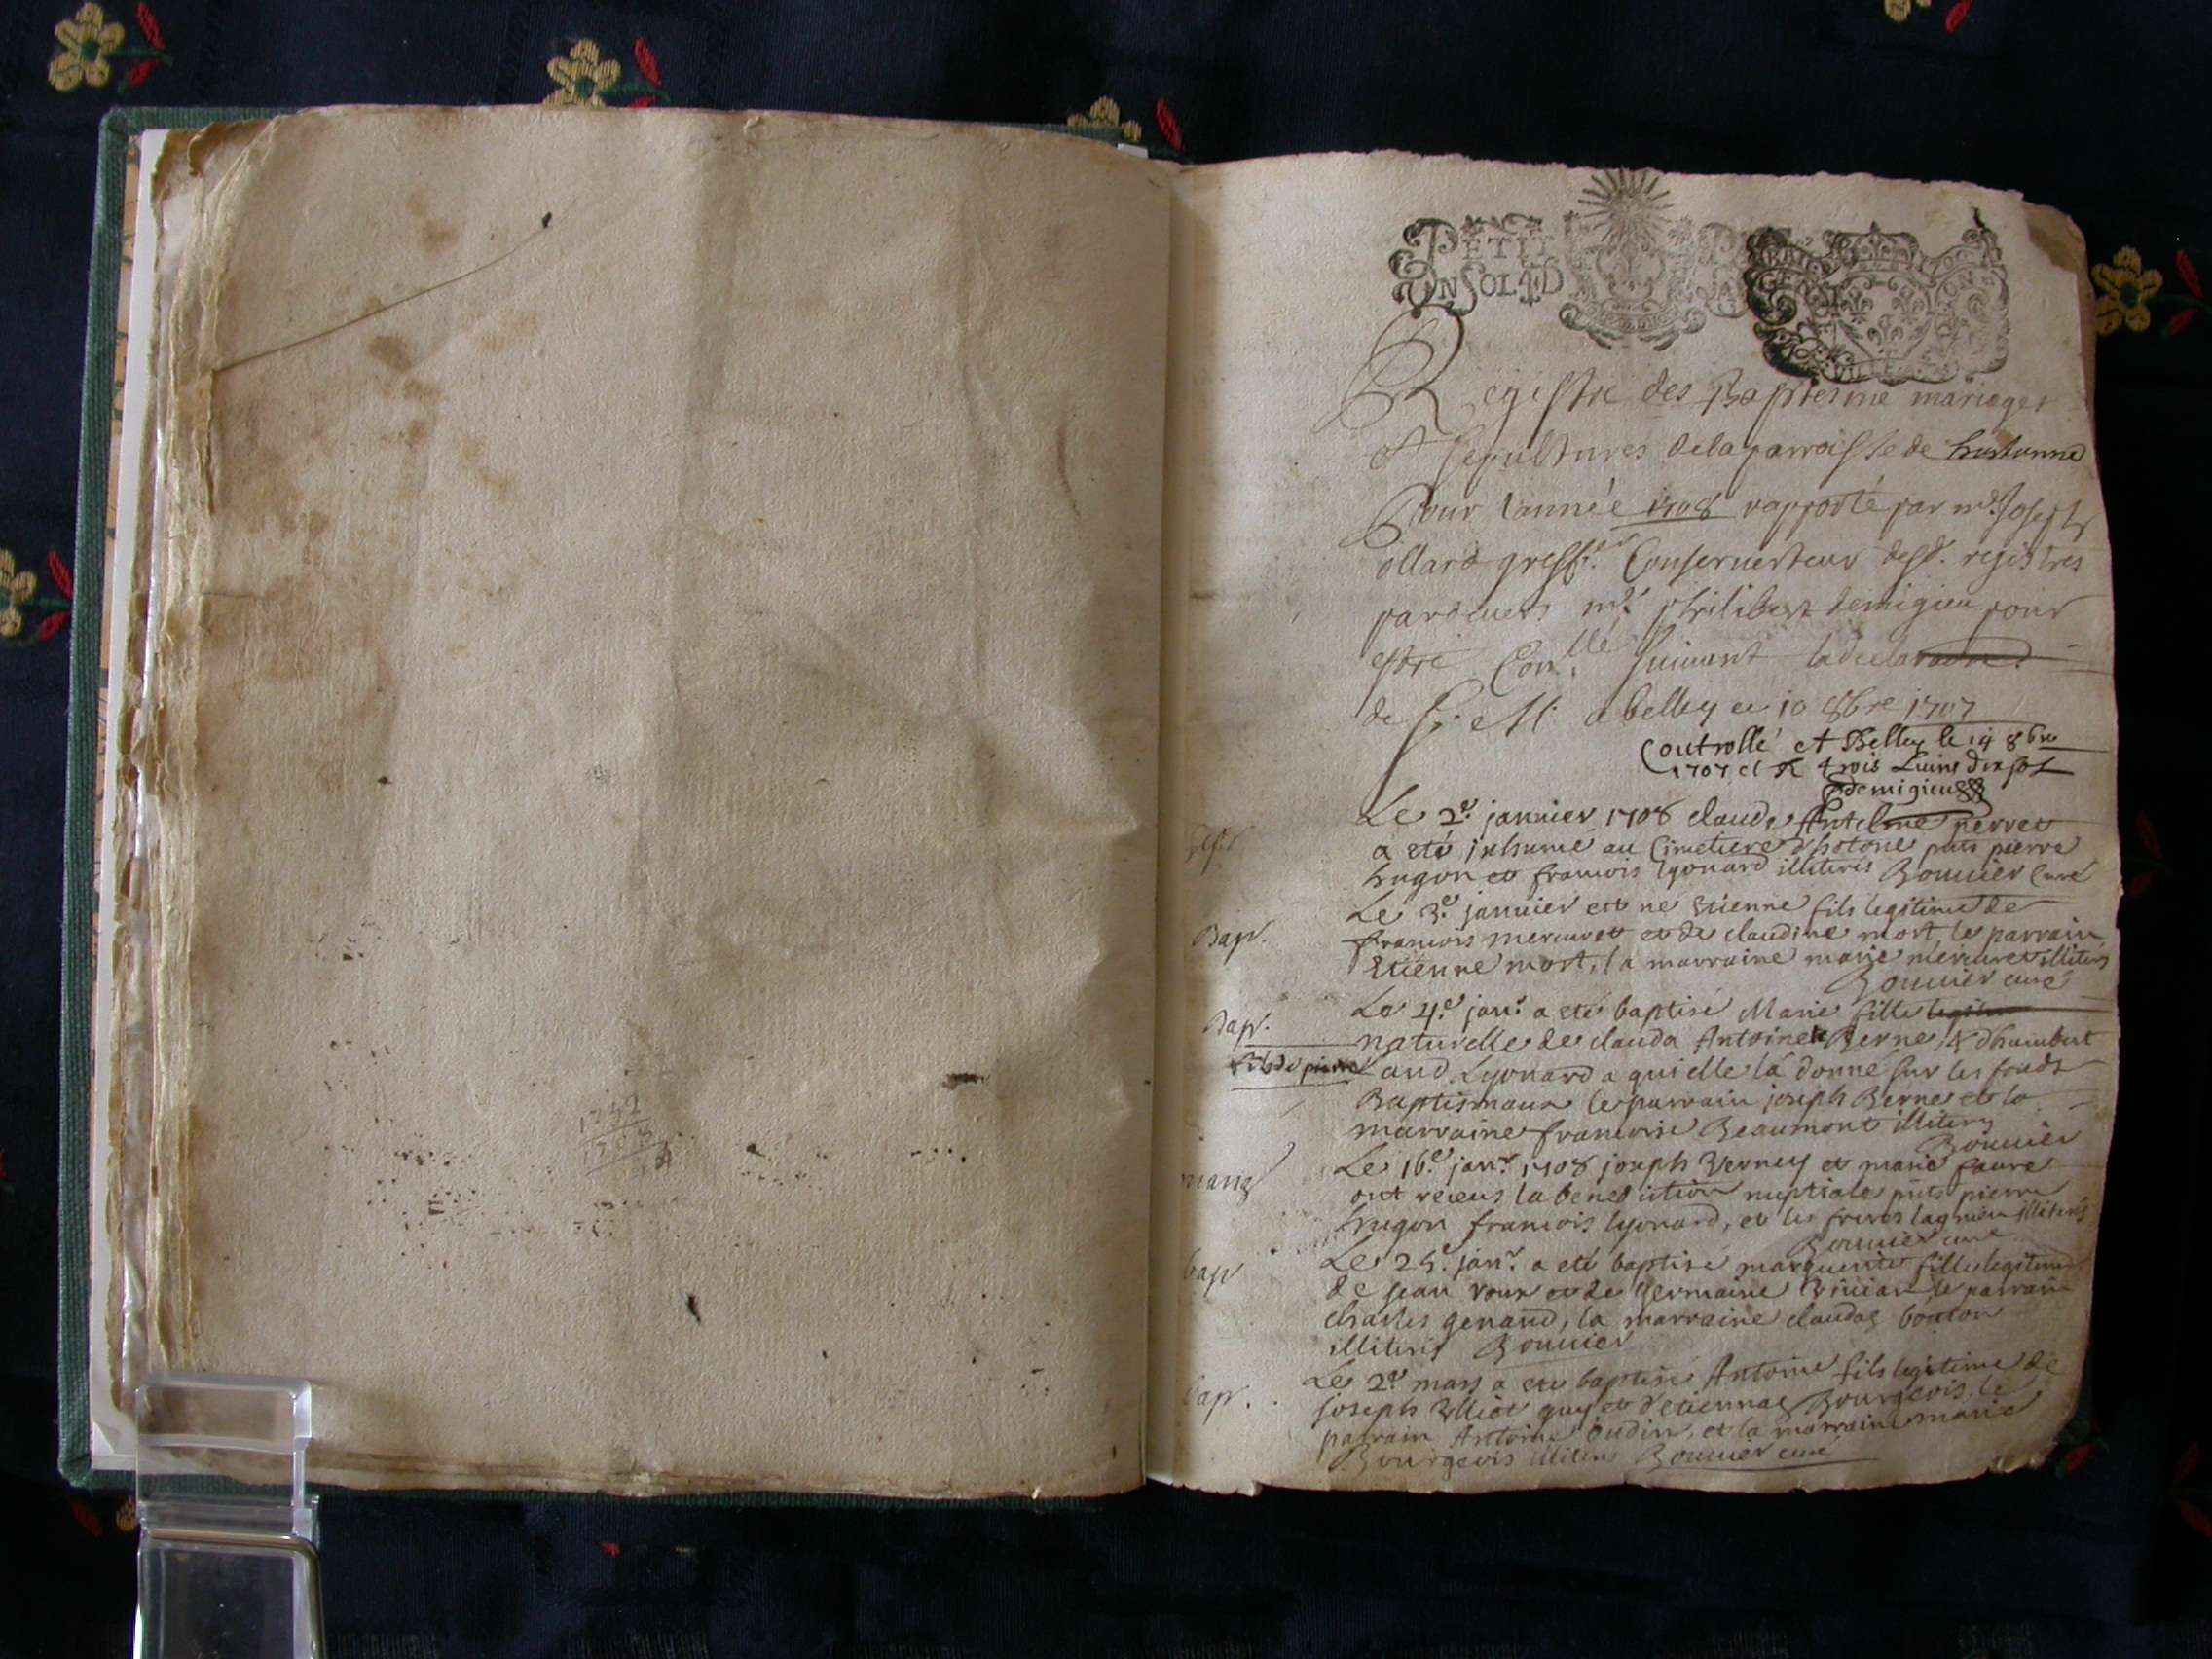 1752
1708
PETIT P
UN SOL 4 D
Registre des Baptesme mariages
et sepultures de la parroisse de hustonne
Pour lannéé 1708 rapporté par mr. Joseph
ollard greff.er Conseruerteur desd. registres
pardeuers mr. philibert demigieu pour
estre Con.llé suiuant la declaraon.
de S. M. a belley ce 10 8bre 1707
Controllé et Belley le 14 8bre
1707 et R trois Liures dix sol
Demigieu
Le 2.e januier 1708 claude Antelme perret
a eté inhumé au Cimetiere d'hotone pnts pierre
hugon et francois lyonard illiteris Bouuier Curé
Bap.
Le 3.e januier est né Etienne fils legitime de
francois mercuret et de claudine mort, le parrain
Etienne mort, la marraine marie mercuret illiteris
Bouuier curé
Bap.
Le 4.e jan.r a eté baptisé Marie fille legitime
naturelle de clauda Antoinete Berne, & d'humbert
fils de pierre
and Lyonard a qui elle la donné sur les fonds
Baptismaux le parrain joseph Berne et la
marraine francoise Beaumont illiteris
Bouuier
mariag
Le 16.e jan.r 1708 joseph Verney et marie faure
ont receus la benediction nuptiale pnts pierre
hugon francois lyonard, et les freres lagnieu illiteris
Bouuier curé
bap
Le 25.e jan.r a eté baptisé marguerite fille legitime
de jean roux et de germaine Biuian le parrain
charles genand, la marraine claudaz bouton
illiteris Bouuier
bap.
Le 2.e mars a eté baptisé Antoine fils legitime de
joseph Billiot guy et d'etiennaz Bourgeois, le
parrain Antoine oudin, et la marraine marie
Bourgeois illiteris Bouuier curé